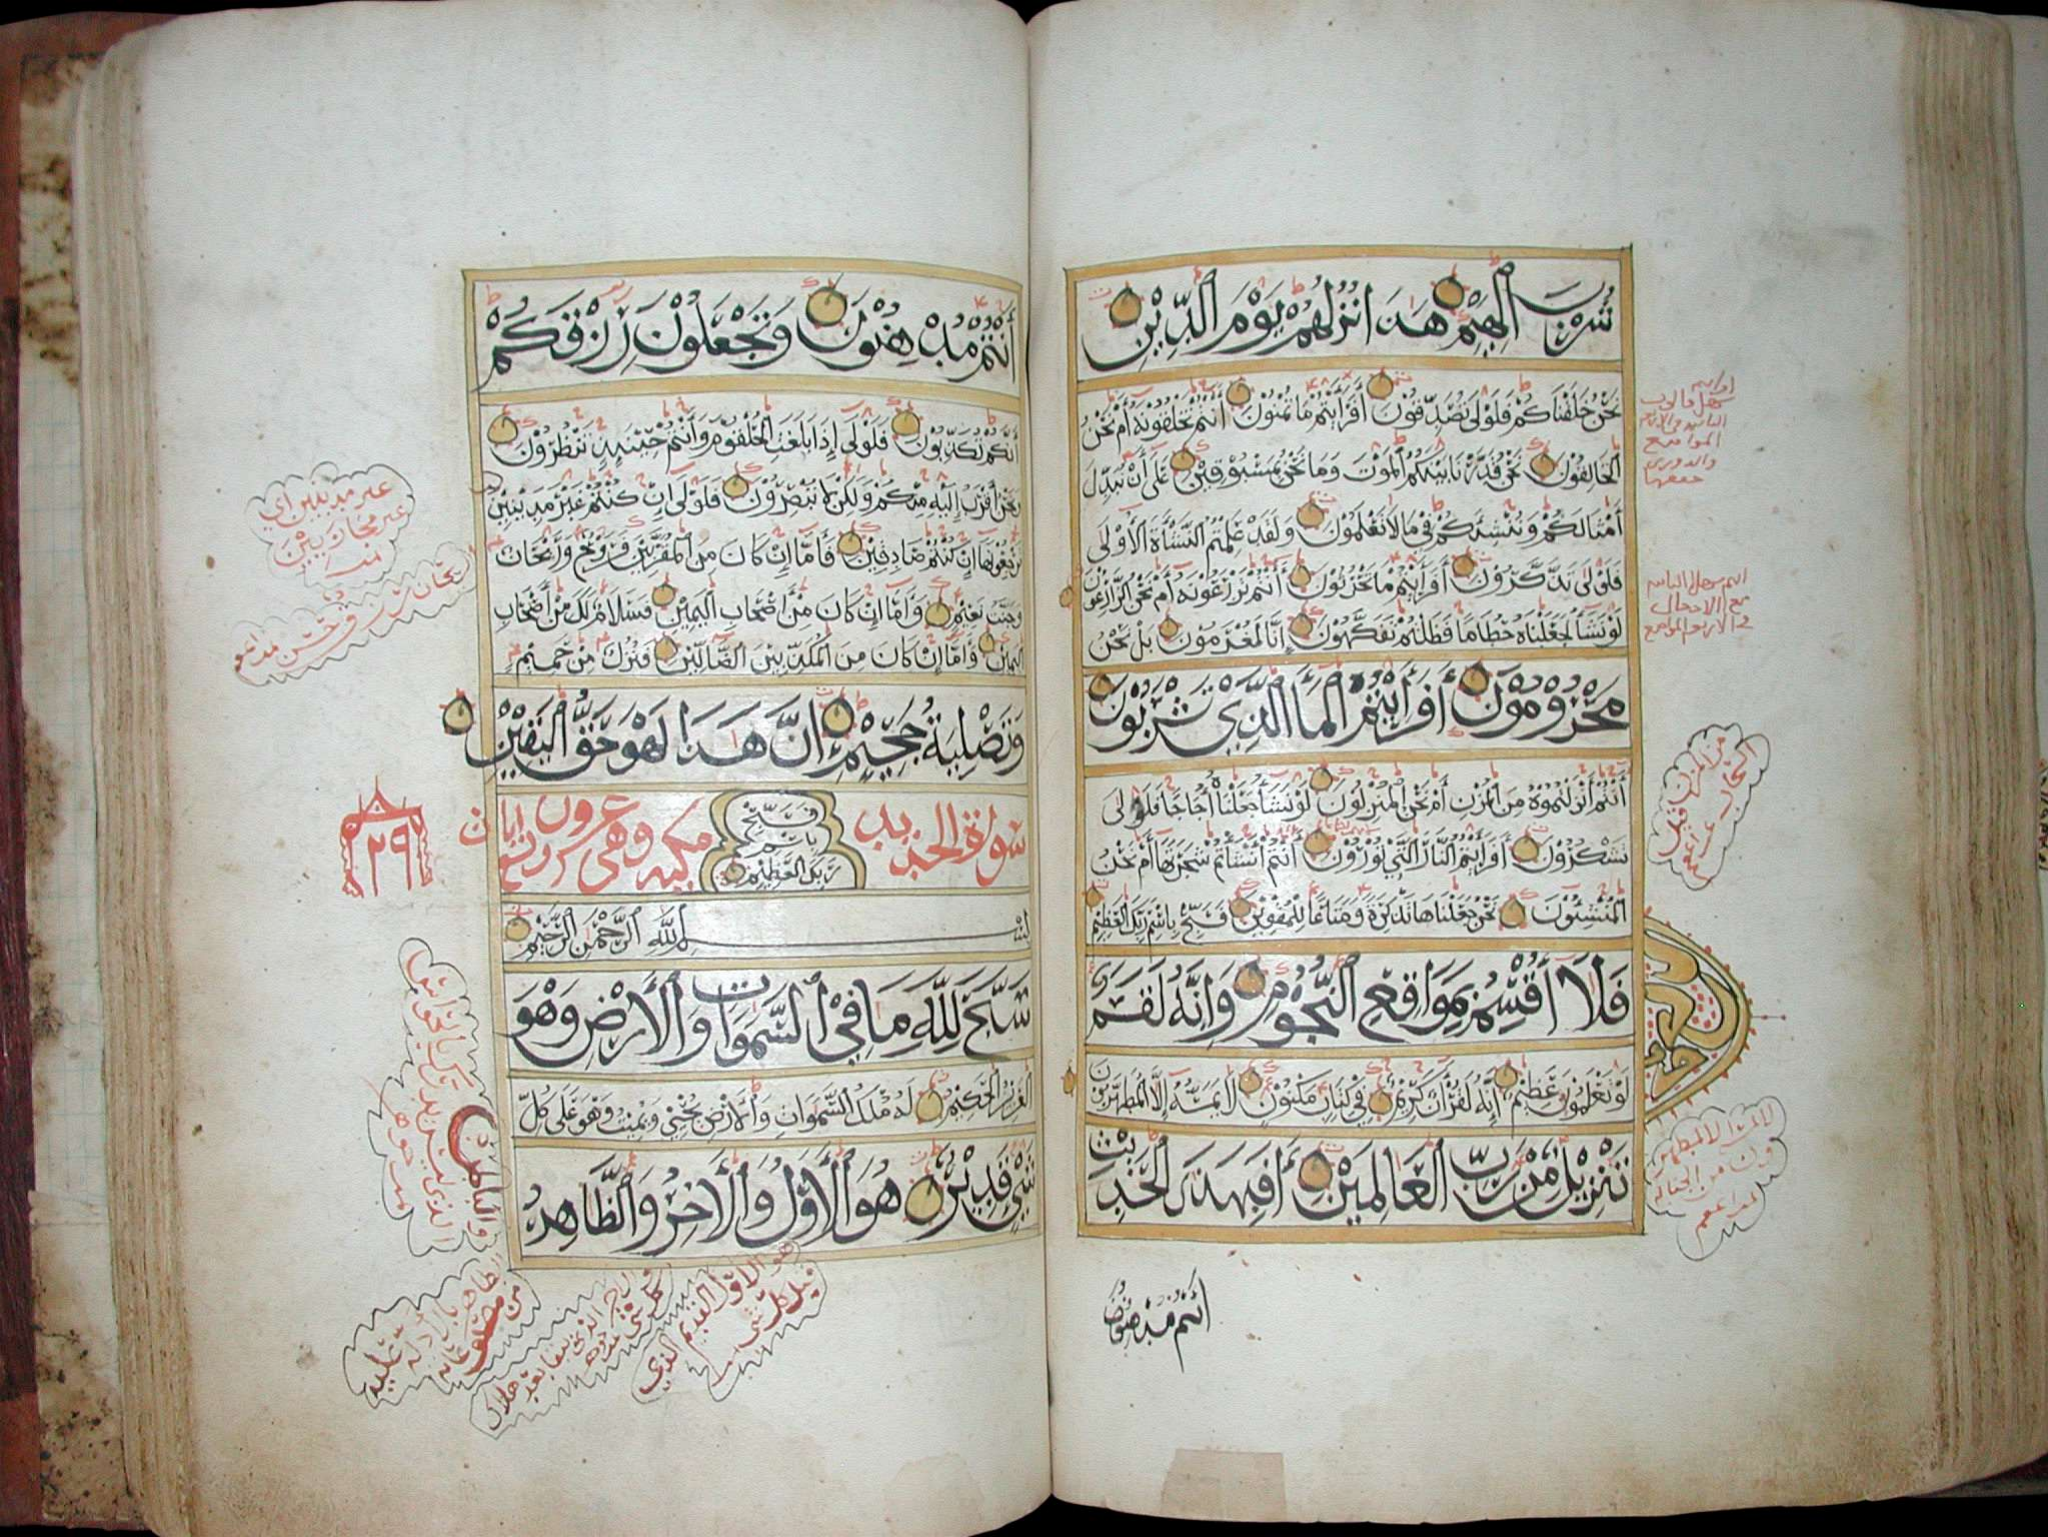 شرب الهيم هذا نزلهم يوم الدين
نحن خلقناكم فلولا تصدقون أفرأيتم ما تمنون أأنتم تخلقونه أم نحن
الخالقون نحن قدرنا بينكم الموت وما نحن بمسبوقين على أن نبدل
أمثالكم وننشئكم في ما لا تعلمون ولقد علمتم النشأة الأولى
فلولا تذكرون أفرأيتم ما تحرثون أأنتم تزرعونه أم نحن الزارعون
لو نشأ لجعلناه حطاما فظلتم تفكهون إنا لمغرمون بل نحن
محرومون أفرأيتم الماء الذي تشربون
أأنتم أنزلتموه من المزن أم نحن المنزلون لو نشأ جعلناه أجاجا فلولا
تشكرون أفرأيتم النار التي تورون أأنتم أنشأتم شجرتها أم نحن
المنشئون نحن جعلناها تذكرة ومتاعا للمقوين فسبح باسم ربك العظيم
فلا أقسم بمواقع النجوم وإنه لقسم
لو تعلمون عظيم إنه لقرآن كريم في كتاب مكنون لا يمسه إلا المطهرون
تنزيل من رب العالمين أفبهذا الحديث
أنتم مدهنون
من المزن قيل
السحاب
أنتم مدهنون وتجعلون رزقكم
أنكم تكذبون فلولا إذا بلغت الحلقوم وأنتم حينئذ تنظرون
ونحن أقرب إليه منكم ولكن لا تبصرون فلولا إن كنتم غير مدينين
ترجعونها إن كنتم صادقين فأما إن كان من المقربين فروح وريحان
وجنت نعيم وأما إن كان من أصحاب اليمين فسلام لك من أصحاب
اليمين وأما إن كان من المكذبين الضالين فنزل من حميم
وتصلية جحيم إن هذا لهو حق اليقين
فسبح باسم ربك العظيم
سورة الحديد مكية وهي عشرون وتسع آيات
٢٩
بسم الله الرحمن الرحيم
سبح لله ما في السموات والأرض وهو
العزيز الحكيم له ملك السموات والأرض يحيي ويميت وهو على كل
شيء قدير هو الأول والآخر والظاهر
والباطن
غير مدينين أي
غير محاربين
هو الأول القديم الذي